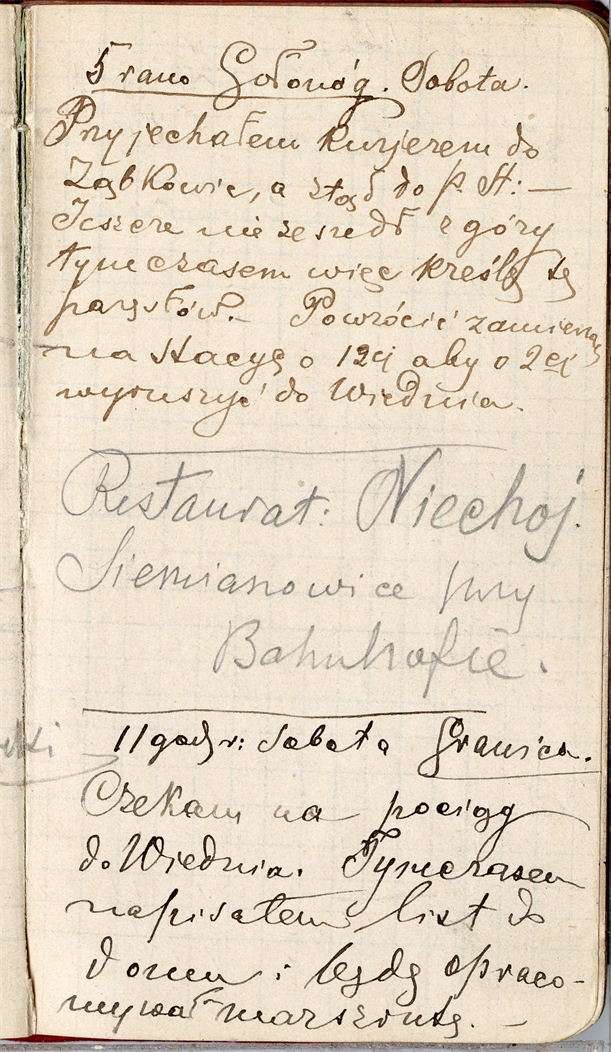 5 rano Gołonóg. Sobota.
Przyjechałem kuryerem do
Ząbkowic, a ztąd do p. H: —
Jeszcze nie zeszedł z góry
tymczasem więc kreślę tę
parę słów. — Powrócić zamierzam
na stacyę o 12ej aby o 2ej
wyruszyć do Wiednia.
Restaurat: Niechoj.
Siemianowice przy
Bahnhofie.
11 godz r: Sobota Granica.
Czekam na pociąg
do Wiednia. Tymczasem
napisałem list do
domu i będę opraco-
wywał marszrutę. —